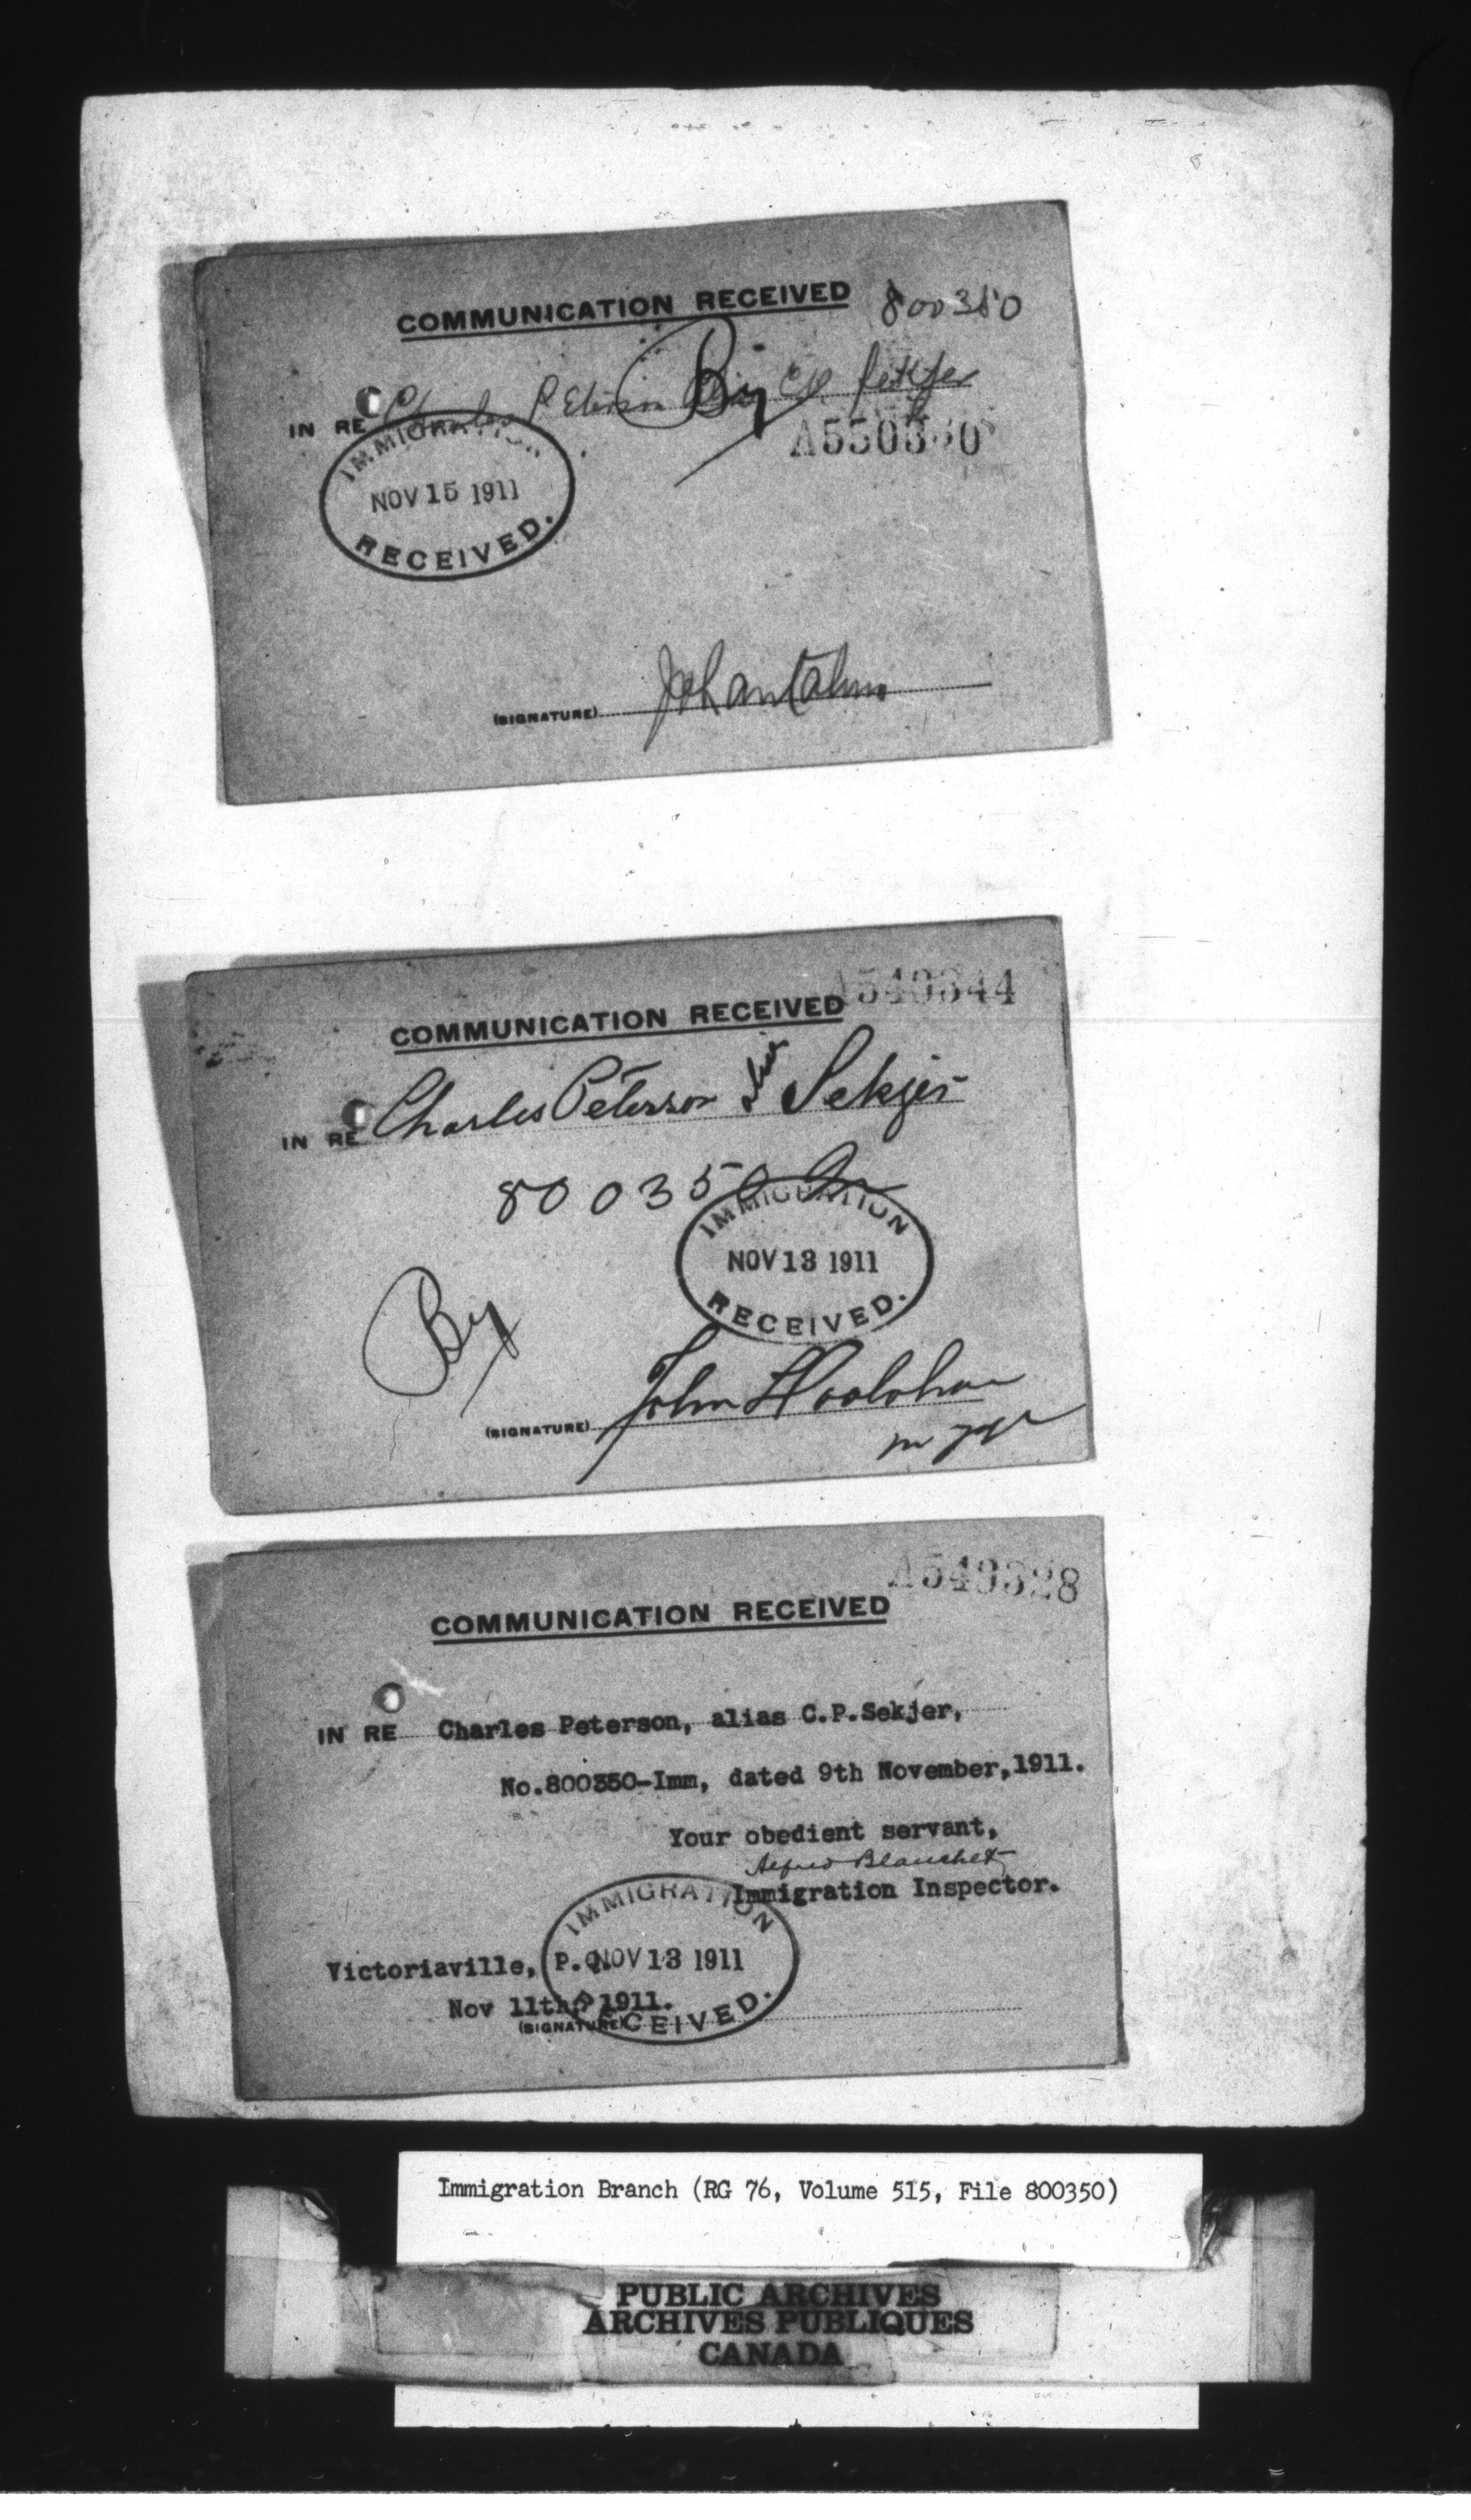 COMMUNICATION RECEIVED 800350
IN RE Charles Peterson alias C.P. Sekjer
By
IMMIGRATION
NOV 15 1911
RECEIVED.
(SIGNATURE)
A549344
COMMUNICATION RECEIVED
IN RE Charles Peterson alias Sekjer
800350
IMMIGRATION
NOV 13 1911
RECEIVED.
By
(SIGNATURE) John Hoolahan
A549328
COMMUNICATION RECEIVED
IN RE Charles Peterson, alias C.P.Sekjer,
No.800350-Imm, dated 9th November,1911.
Your obedient servant,
Alfred Blanchet
Immigration Inspector.
IMMIGRATION
Victoriaville, P.Q.
NOV 13 1911
Nov 11th, 1911.
RECEIVED.
(SIGNATURE)
Immigration Branch (RG 76, Volume 515, File 800350)
PUBLIC ARCHIVES
ARCHIVES PUBLIQUES
CANADA